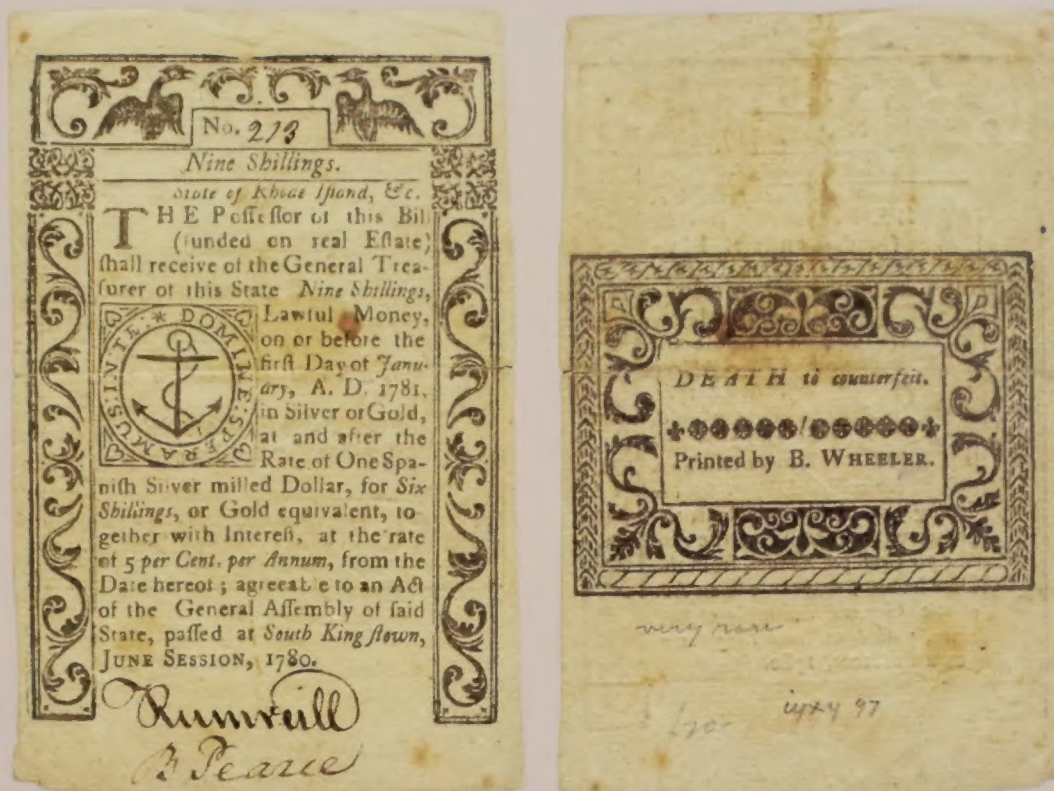 No. 213
Nine Shillings.
State of Rhode Iſland, &c.
THE Poſſeſſor of this Bill
(funded on real Eſtate)
ſhall receive of the General Trea-
ſurer of this State Nine Shillings,
Lawful Money,
on or before the
firſt Day of Janu-
ary, A. D. 1781,
in Silver or Gold,
at and after the
Rate of One Spa-
niſh Silver milled Dollar, for Six
Shillings, or Gold equivalent, to-
gether with Intereſt, at the rate
of 5 per Cent. per Annum, from the
Date hereof; agreeable to an Act
of the General Aſſembly of ſaid
State, paſſed at South Kingſtown,
JUNE SESSION, 1780.
IN:TE:SPERAMUS:DOMINE:*
Rumreill
B Pearce
DEATH to counterfeit.
Printed by B. WHEELER.
very rare